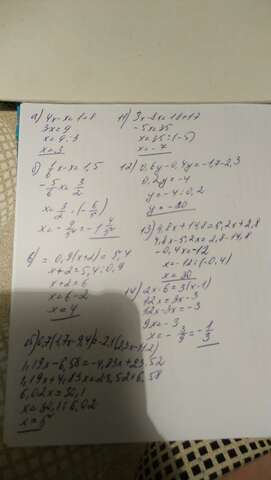 а) 4x-x=1+8
3x=9
x=9:3
x=3
б) 1/6 x-x=1,5
-5/6 x=3/2
x=3/2:(-6/5)
x=-9/5=-1 4/5
в) 0,9(x+2)=5,4
x+2=5,4:0,9
x+2=6
x=6-2
x=4
15) 0,7(1,7x-9,4)=-2,1(
1,19x-6,58=-4,83x+23,52
1,19x+4,83x=23,52+6,58
6,02x=30,1
x=30,1:6,02
x=5
11) 3x-8x=18+17
-5x=35
x=35:(-5)
x=-7
12) 0,6y-0,4y=-1,7-2,3
0,2y=-4
y=-4:0,2
y=-20
13) 4,8x+14,8=5,2x+2,8
4,8x-5,2x=2,8-14,8
-0,4x=-12
x=-12:(-0,4)
x=30
14) 12x=3(x-1)
12x=3x-3
12x-3x=-3
9x=-3
x=-3/9=-1/3